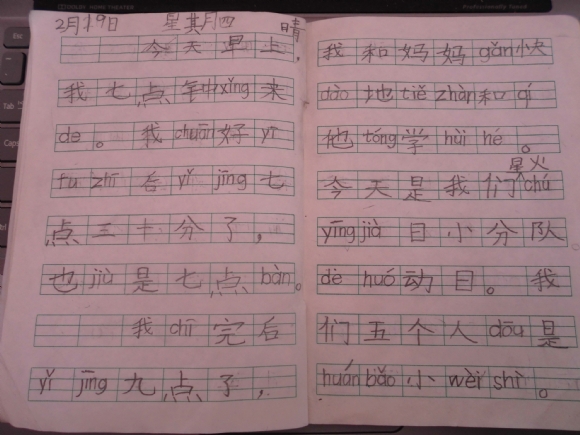 2月19日 星其月四 晴
今天早上，
我七点钟xǐng来
de。我chuān好yī
fu zhī后yǐ jīng七
点三十分了，
也jiù是七点bàn。
我chī完后
yǐ jīng九点了，
我和妈妈gǎn快
dào地tiě zhàn和qí
他tóng学huì hé。
今天是我们星火chú
yīng jià日小分队
dē huó动日。我
们五个人dōu是
huán bǎo小wèi shì。